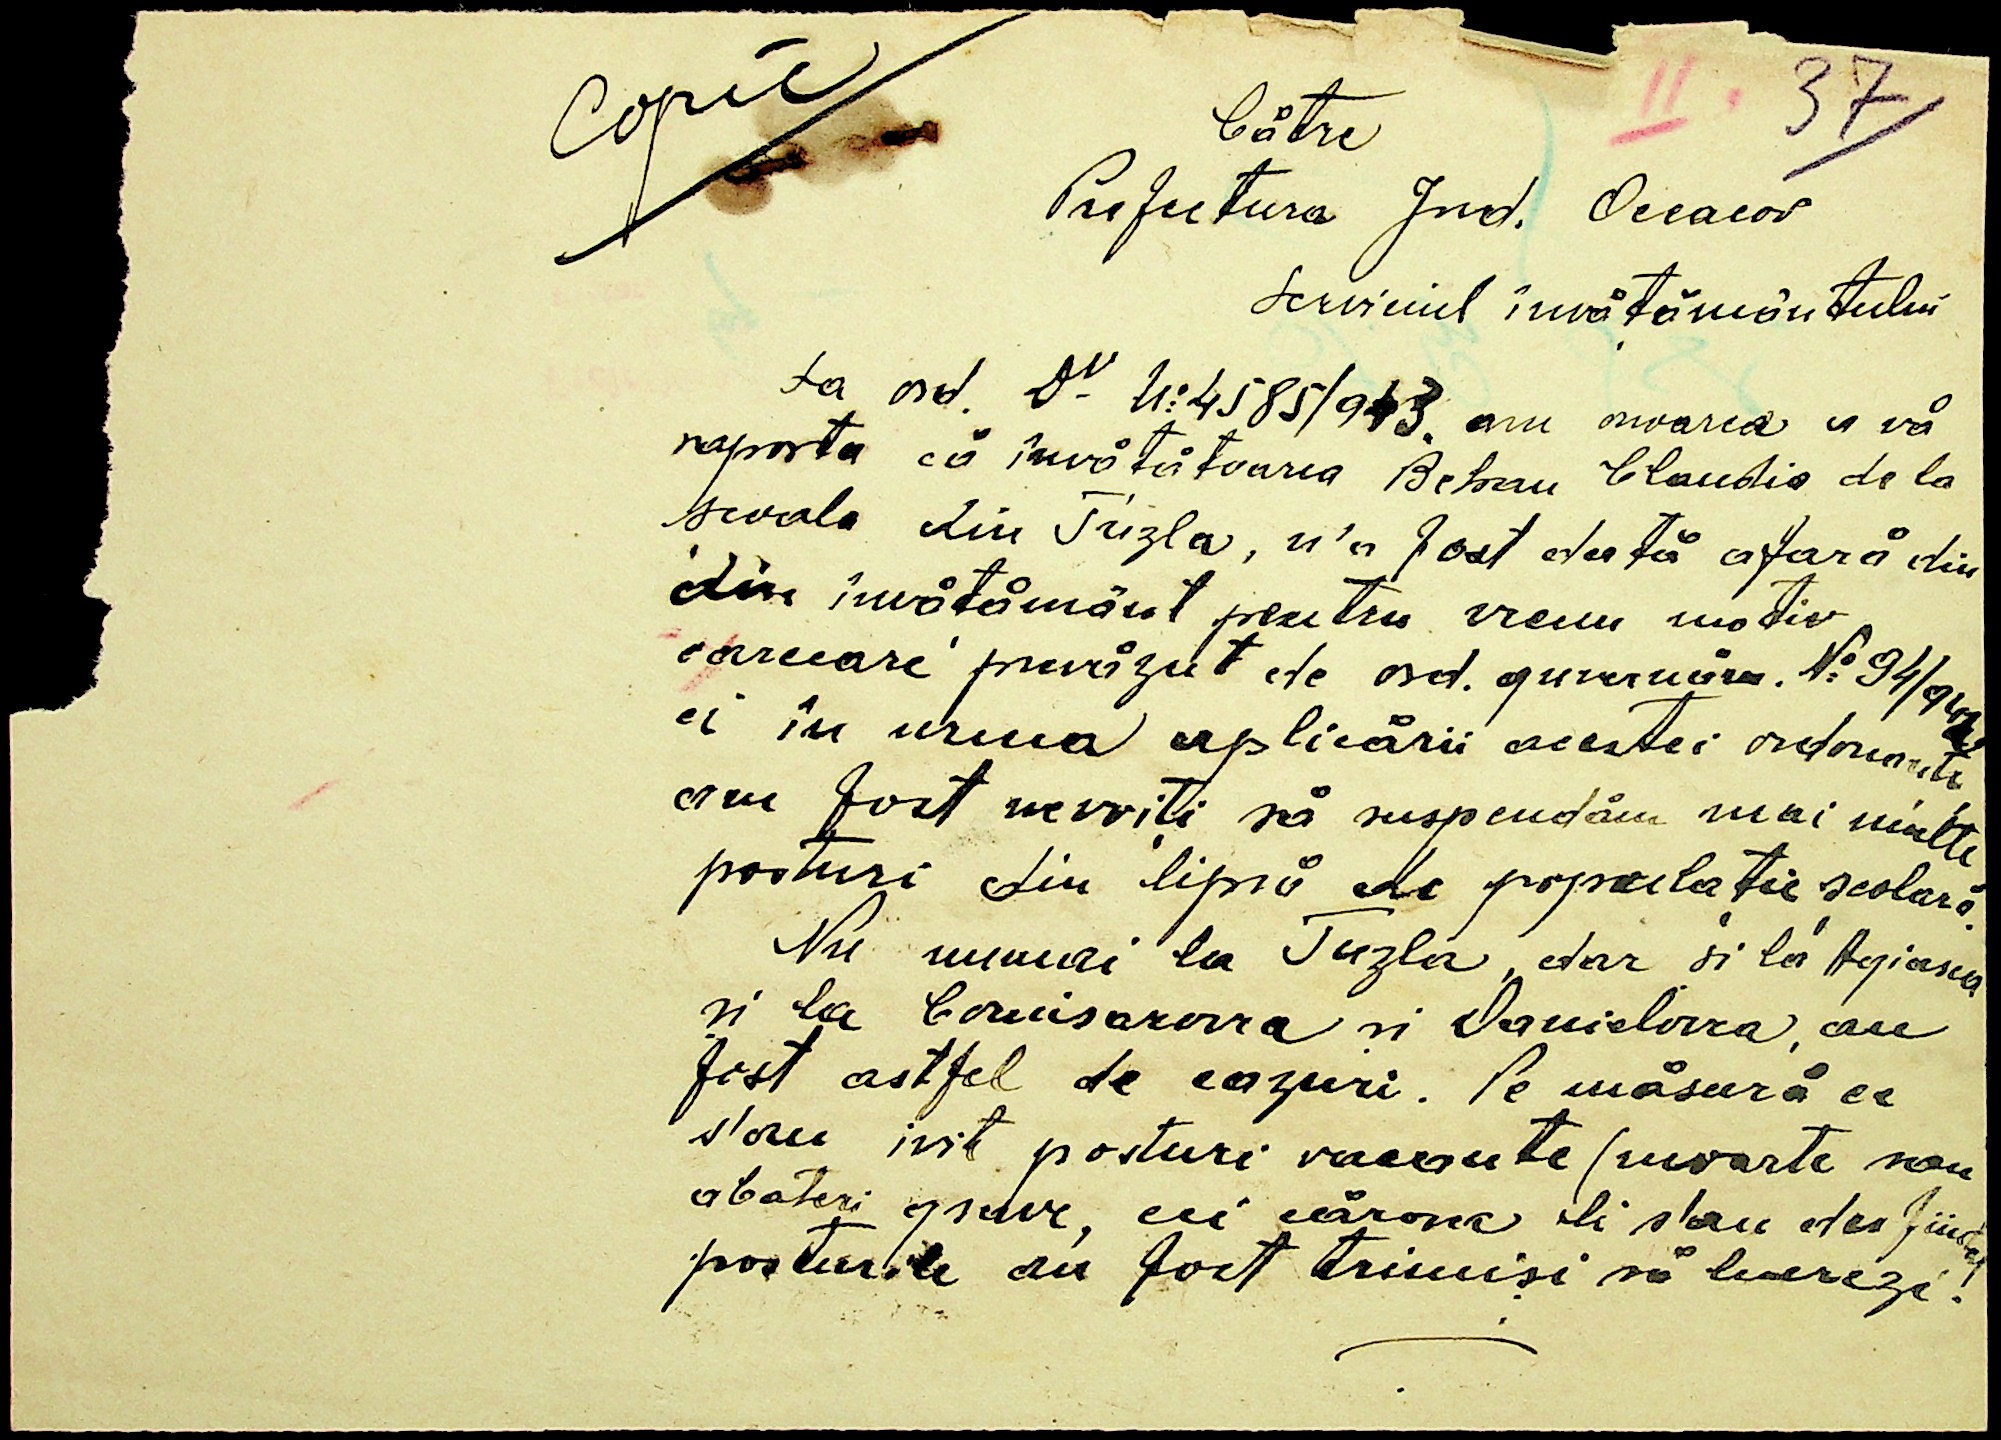 Copie
II. 37
Către
Prefectura Jud. Oceacov
Serviciul învătământului
La ord. Dv N: 4585/943. am onoarea a vă
raporta că învătătoarea Beban Claudia de la
scoala din Tuzla, n'a fost dată afară din
din învătământ pentru vreun motiv
oarecare prevăzut de ord. guvernăm. No 94/942
ci în urma aplicării acestei ordonante
am fost nevoiți să suspendăm mai multe
posturi din lipsă de populatie scolară.
Nu numai la Tuzla, dar si la Agiasca
si la Comisarovca si Danielovca, au
fost astfel de cazuri. Pe măsură ce
s'au ivit posturi vacante (moarte sau
abateri grave, cei cărora li s'au desfiintat
posturile au fost trimiși să lucreze!